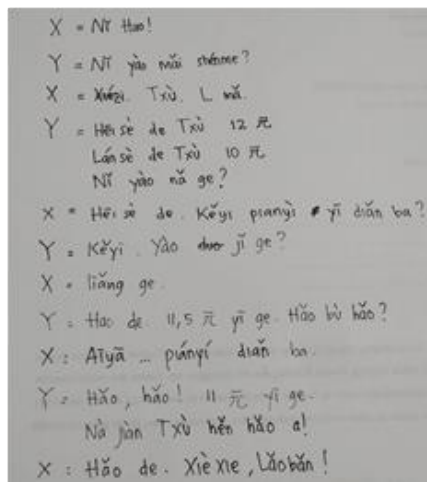 X = Nǐ Hao!
Y = Nǐ yào mǎi shénme?
X = Txù. L mǎ.
Y = Hēi sè de Txù 12 元
Lán sè de Txù 10 元
Nǐ yào nǎ ge?
X = Hēi sè de. Kěyǐ piányì yī diǎn ba?
Y = Kěyǐ. Yào jǐ ge?
X = liǎng ge.
Y = Hao de. 11,5 元 yī ge. Hǎo bù hǎo?
X : Aīyā ... piányí diǎn ba.
Y : Hǎo, hǎo! 11 元 yī ge.
Nà jiàn Txù hěn hǎo a!
X : Hǎo de. Xiè xie, Lǎobǎn!